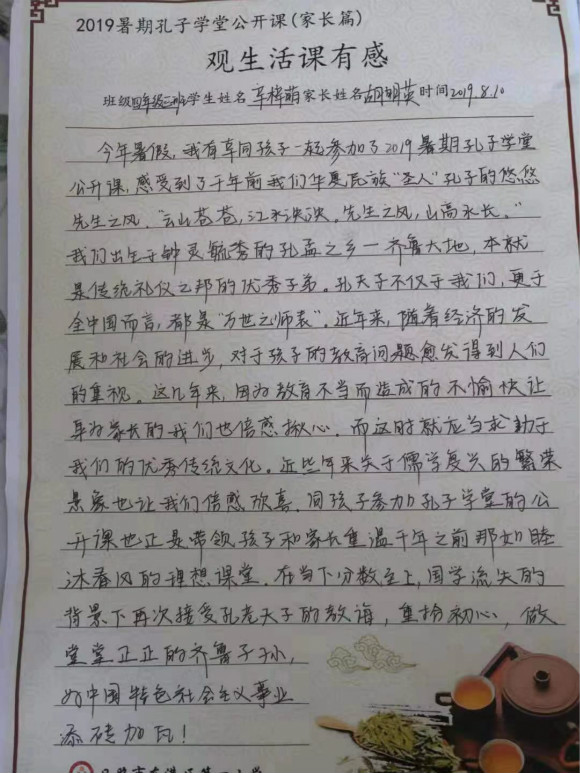 2019暑期孔子学堂公开课(家长篇)
观生活课有感
班级四年级三班学生姓名辛梓萌家长姓名胡明英时间2019.8.10
今年暑假,我有幸同孩子一起参加了2019暑期孔子学堂
公开课,感受到了千年前我们华夏民族"圣人"孔子的悠悠
先生之风。"云山苍苍,江水泱泱。先生之风,山高水长。"
我们出生于钟灵毓秀的孔孟之乡—齐鲁大地,本就
是传统礼仪之邦的优秀子弟。孔夫子不仅于我们,更于
全中国而言,都是"万世之师表"。近年来,随着经济的发
展和社会的进步,对于孩子的教育问题愈发得到人们
的重视。这几年来,因为教育不当而造成的不愉快让
身为家长的我们也倍感揪心。而这时就应当求助于
我们的优秀传统文化。近些年来关于儒学复兴的繁荣
景象也让我们倍感欣喜。同孩子参加孔子学堂的公
开课也正是带领孩子和家长重温千年之前那如睦
沐春风的理想课堂。在当下分数至上,国学流失的
背景下再次接受孔老夫子的教诲,重拾初心,做
堂堂正正的齐鲁子孙,
为中国特色社会主义事业
添砖加瓦!